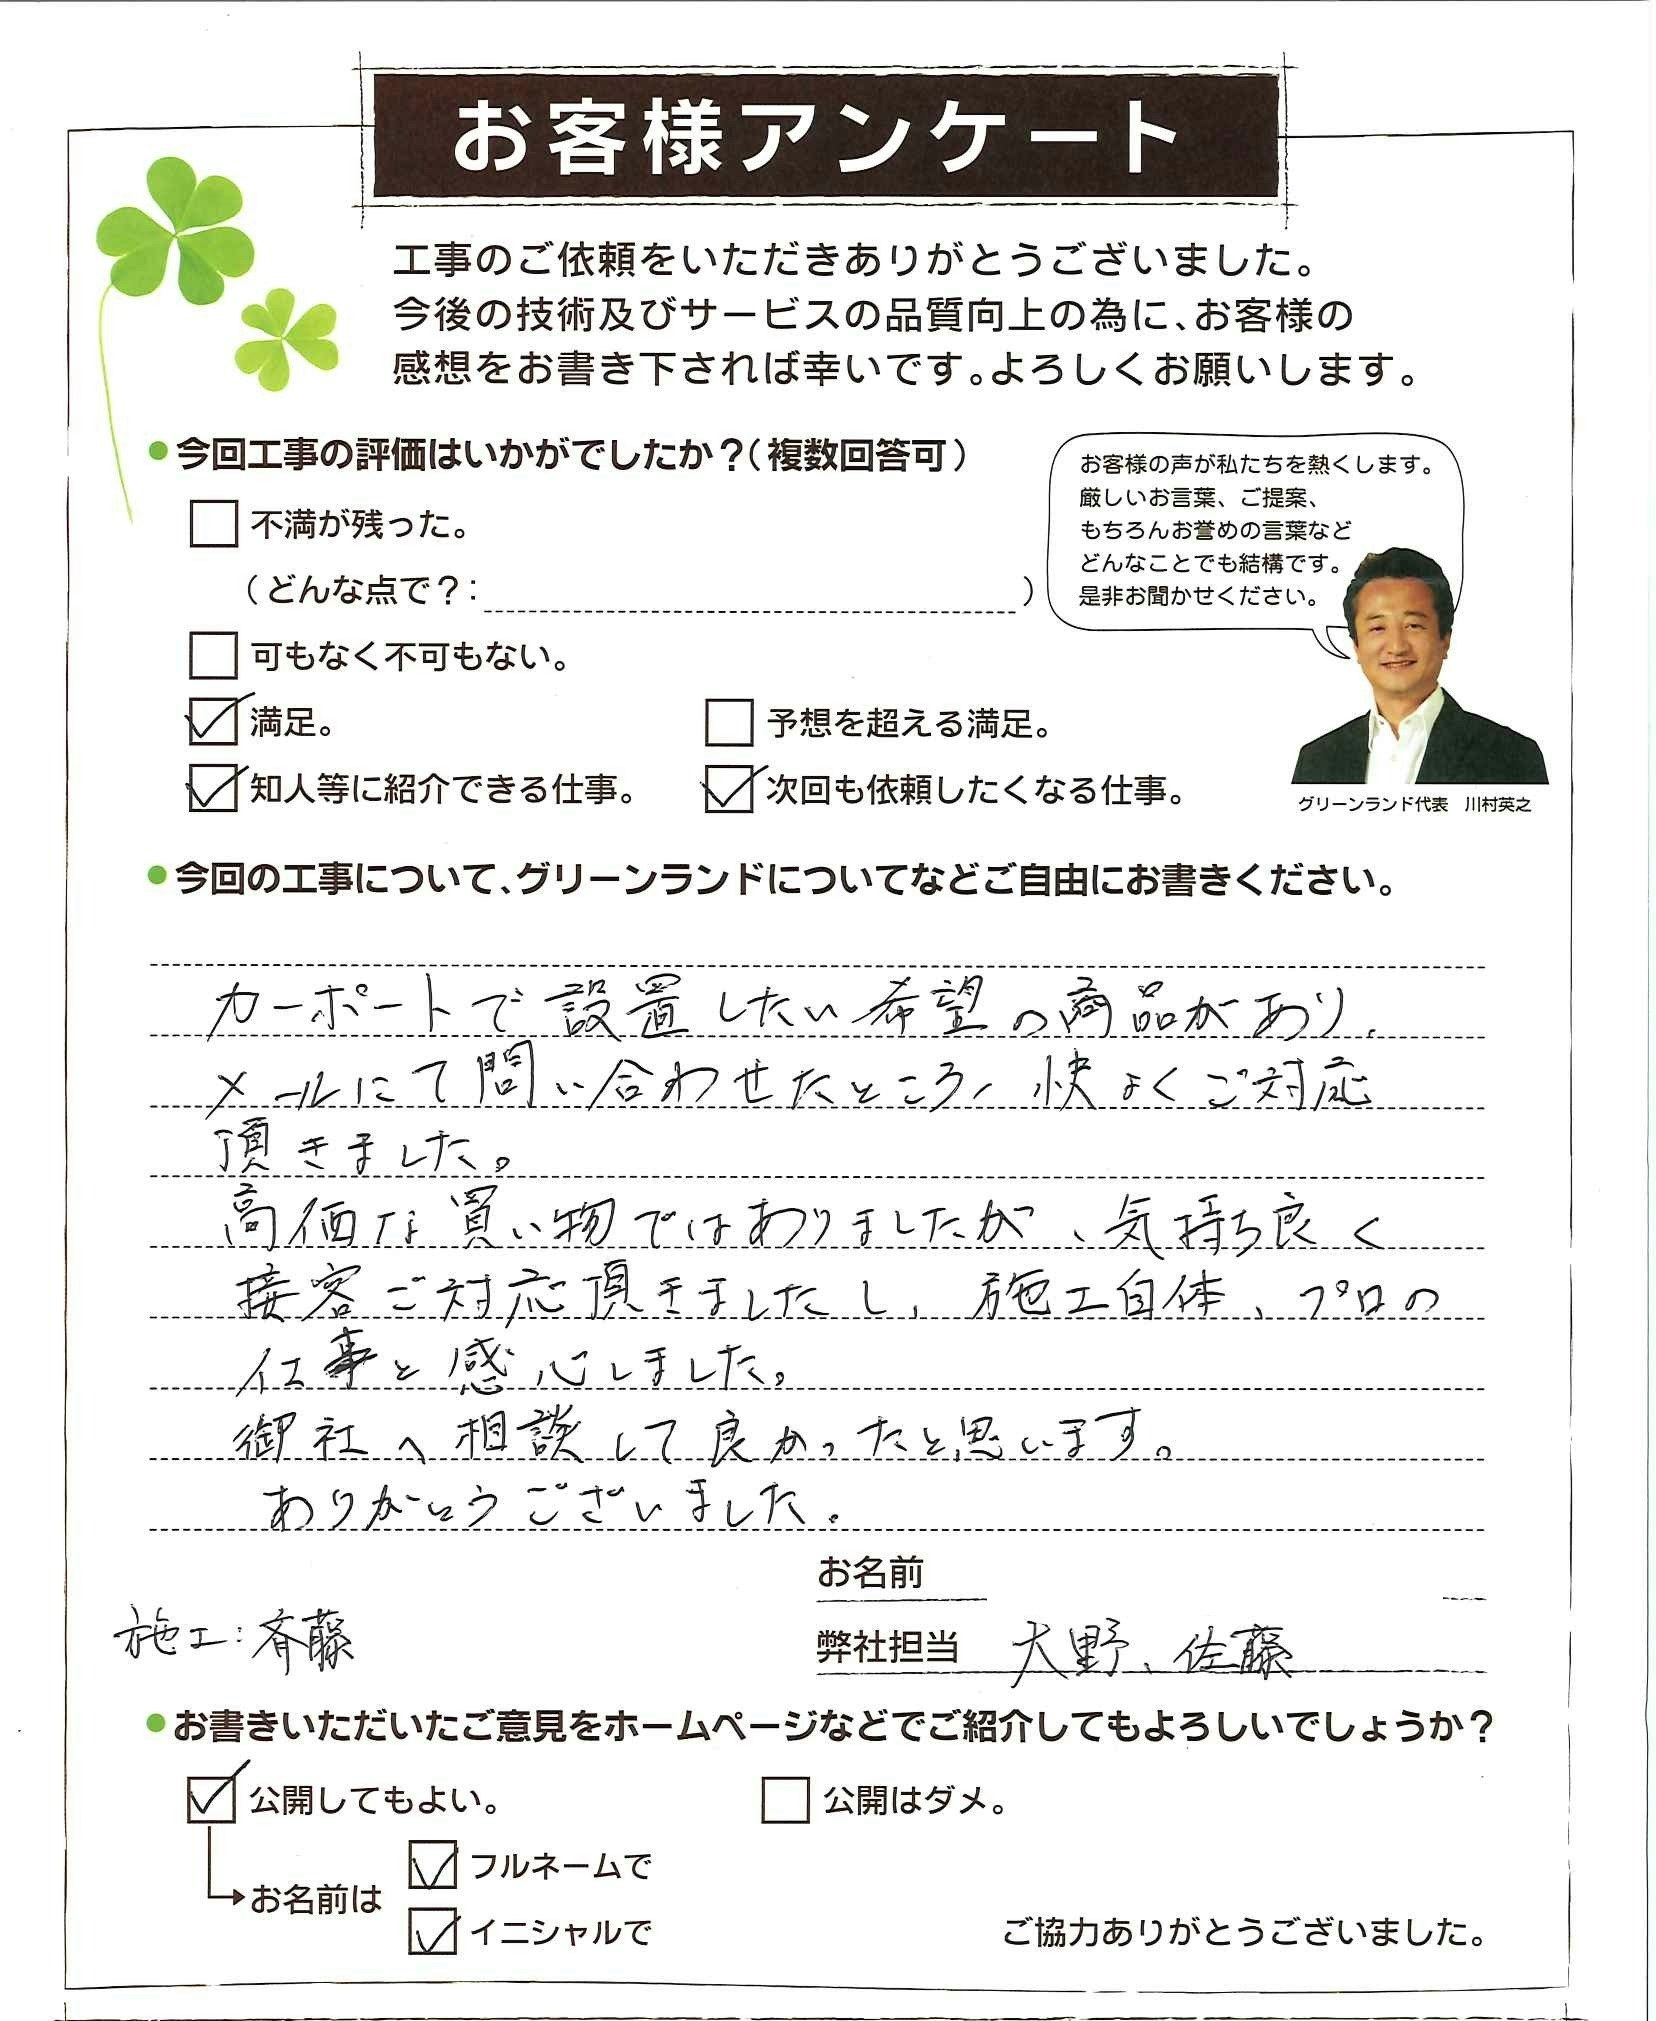 お客様アンケート
工事のご依頼をいただきありがとうございました。
今後の技術及びサービスの品質向上の為に、お客様の
感想をお書き下されば幸いです。よろしくお願いします。
今回工事の評価はいかがでしたか？（複数回答可）
不満が残った。
（どんな点で？：）
可もなく不可もない。
満足。
予想を超える満足。
知人等に紹介できる仕事。
次回も依頼したくなる仕事。
お客様の声が私たちを熱くします。
厳しいお言葉、ご提案、
もちろんお誉めの言葉など
どんなことでも結構です。
是非お聞かせください。
グリーンランド代表　川村英之
今回の工事について、グリーンランドについてなどご自由にお書きください。
カーポートで設置したい希望の商品があり、
メールにて問い合わせたところ、快よくご対応
頂きました。
高価な買い物ではありましたが、気持ち良く
接客ご対応頂きましたし、施工自体、プロの
仕事と感心しました。
御社へ相談して良かったと思います。
ありがとうございました。
お名前
施工：斉藤
弊社担当　大野、佐藤
お書きいただいたご意見をホームページなどでご紹介してもよろしいでしょうか？
公開してもよい。
公開はダメ。
お名前は
フルネームで
イニシャルで
ご協力ありがとうございました。